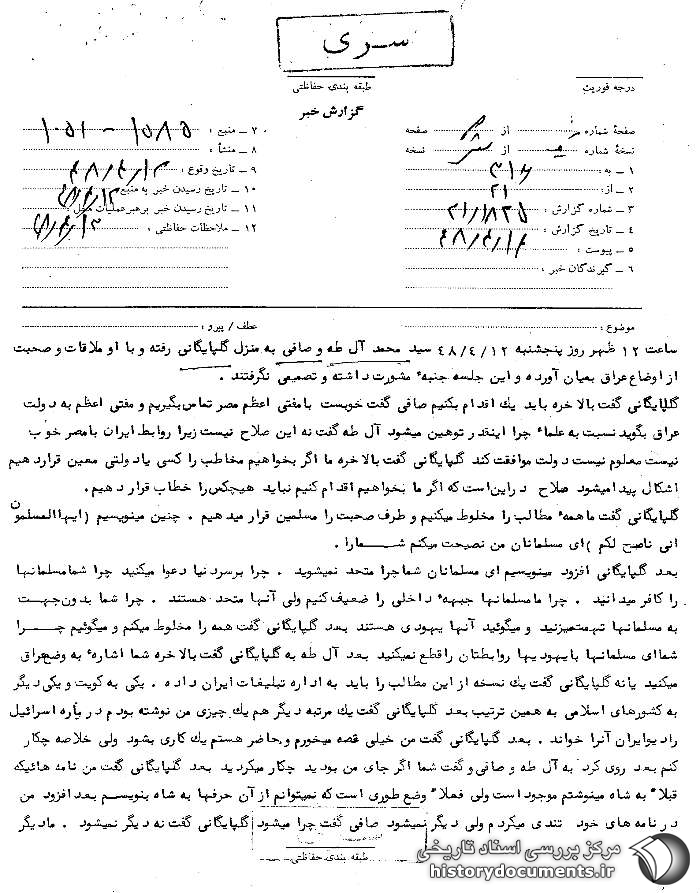 سری
درجه فوریت
طبقه بندی حفاظتی
گزارش خبر
صفحهٔ شماره از صفحه
نسخهٔ شماره از نسخه
۱ ـ به : ۳۱۶
۲ ـ از : ۲۱
۳ ـ شماره گزارش : ۲۱/۱۸۲۵
۴ ـ تاریخ گزارش :
۵ ـ پیوست :
۶ ـ گیرندگان خبر :
۷ ـ منبع : ۱۰۸۵ - ۱۰۵۱
۸ ـ منشأ :
۹ ـ تاریخ وقوع :
۱۰ ـ تاریخ رسیدن خبر به منبع :
۱۱ ـ تاریخ رسیدن خبر برهبر عملیات
۱۲ ـ ملاحظات حفاظتی :
موضوع : عطف / پیرو :
ساعت ۱۲ ظهر روز پنجشنبه ۴۸/۴/۱۲ سید محمد آل طه و صافی به منزل گلپایگانی رفته و با او ملاقات و صحبت
از اوضاع عراق بمیان آورده و این جلسه جنبهٔ مشورت داشته و تصمیمی نگرفتند .
گلپایگانی گفت بالاخره باید یك اقدام بکنیم صافی گفت خوبست بامفتی اعظم مصر تماس بگیریم و مفتی اعظم به دولت
عراق بگوید نسبت به علماء چرا اینقدر توهین میشود آل طه گفت نه این صلاح نیست زیرا روابط ایران بامصر خوب
نیست معلوم نیست دولت موافقت کند گلپایگانی گفت بالاخره ما اگر بخواهیم مخاطب را کسی یا دولتی معین قرار دهیم
اشکال پیدا میشود صلاح در این است که اگر ما بخواهیم اقدام کنیم نباید هیچکس را خطاب قرار دهیم .
گلپایگانی گفت ما همهٔ مطالب را مخلوط میکنیم و طرف صحبت را مسلمین قرار میدهیم . چنین مینویسیم (ایها المسلمون
انی ناصح لکم ) ای مسلمانان من نصیحت میکنم شمارا .
بعد گلپایگانی افزود مینویسیم ای مسلمانان شما چرا متحد نمیشوید . چرا برسر دنیا دعوا میکنید چرا شما مسلمانها
را کافر میدانید . چرا ما مسلمانها جبههٔ داخلی را ضعیف کنیم ولی آنها متحد هستند . چرا شما بدون جهت
به مسلمانها تهمت میزنید و میگوئید آنها یهودی هستند بعد گلپایگانی گفت همه را مخلوط میکنم و میگوئیم چرا
شما ای مسلمانها با یهودیها روابطتان را قطع نمیکنید بعد آل طه به گلپایگانی گفت بالاخره شما اشارهٔ به وضع عراق
میکنید یا نه گلپایگانی گفت یك نسخه از این مطالب را باید به اداره تبلیغات ایران داده . یکی به کویت و یکی دیگر
به کشورهای اسلامی به همین ترتیب بعد گلپایگانی گفت یك مرتبه دیگر هم یك چیزی من نوشته بودم درباره اسرائیل
رادیو ایران آنرا خواند . بعد گلپایگانی گفت من خیلی غصه میخورم و حاضر هستم یك کاری بشود ولی خلاصه چکار
کنم بعد روی کرد به آل طه و صافی و گفت شما اگر جای من بودید چکار میکردید بعد گلپایگانی گفت من نامه هائیکه
قبلاً به شاه مینوشتم موجود است ولی فعلاً وضع طوری است که نمیتوانم از آن حرفها به شاه بنویسم بعد افزود من
در نامه های خود تندی میکردم ولی دیگر نمیشود صافی گفت چرا میشود گلپایگانی گفت نه دیگر نمیشود . ما دیگر
طبقه بندی حفاظتی
مرکز بررسی اسناد تاریخی
historydocuments.ir